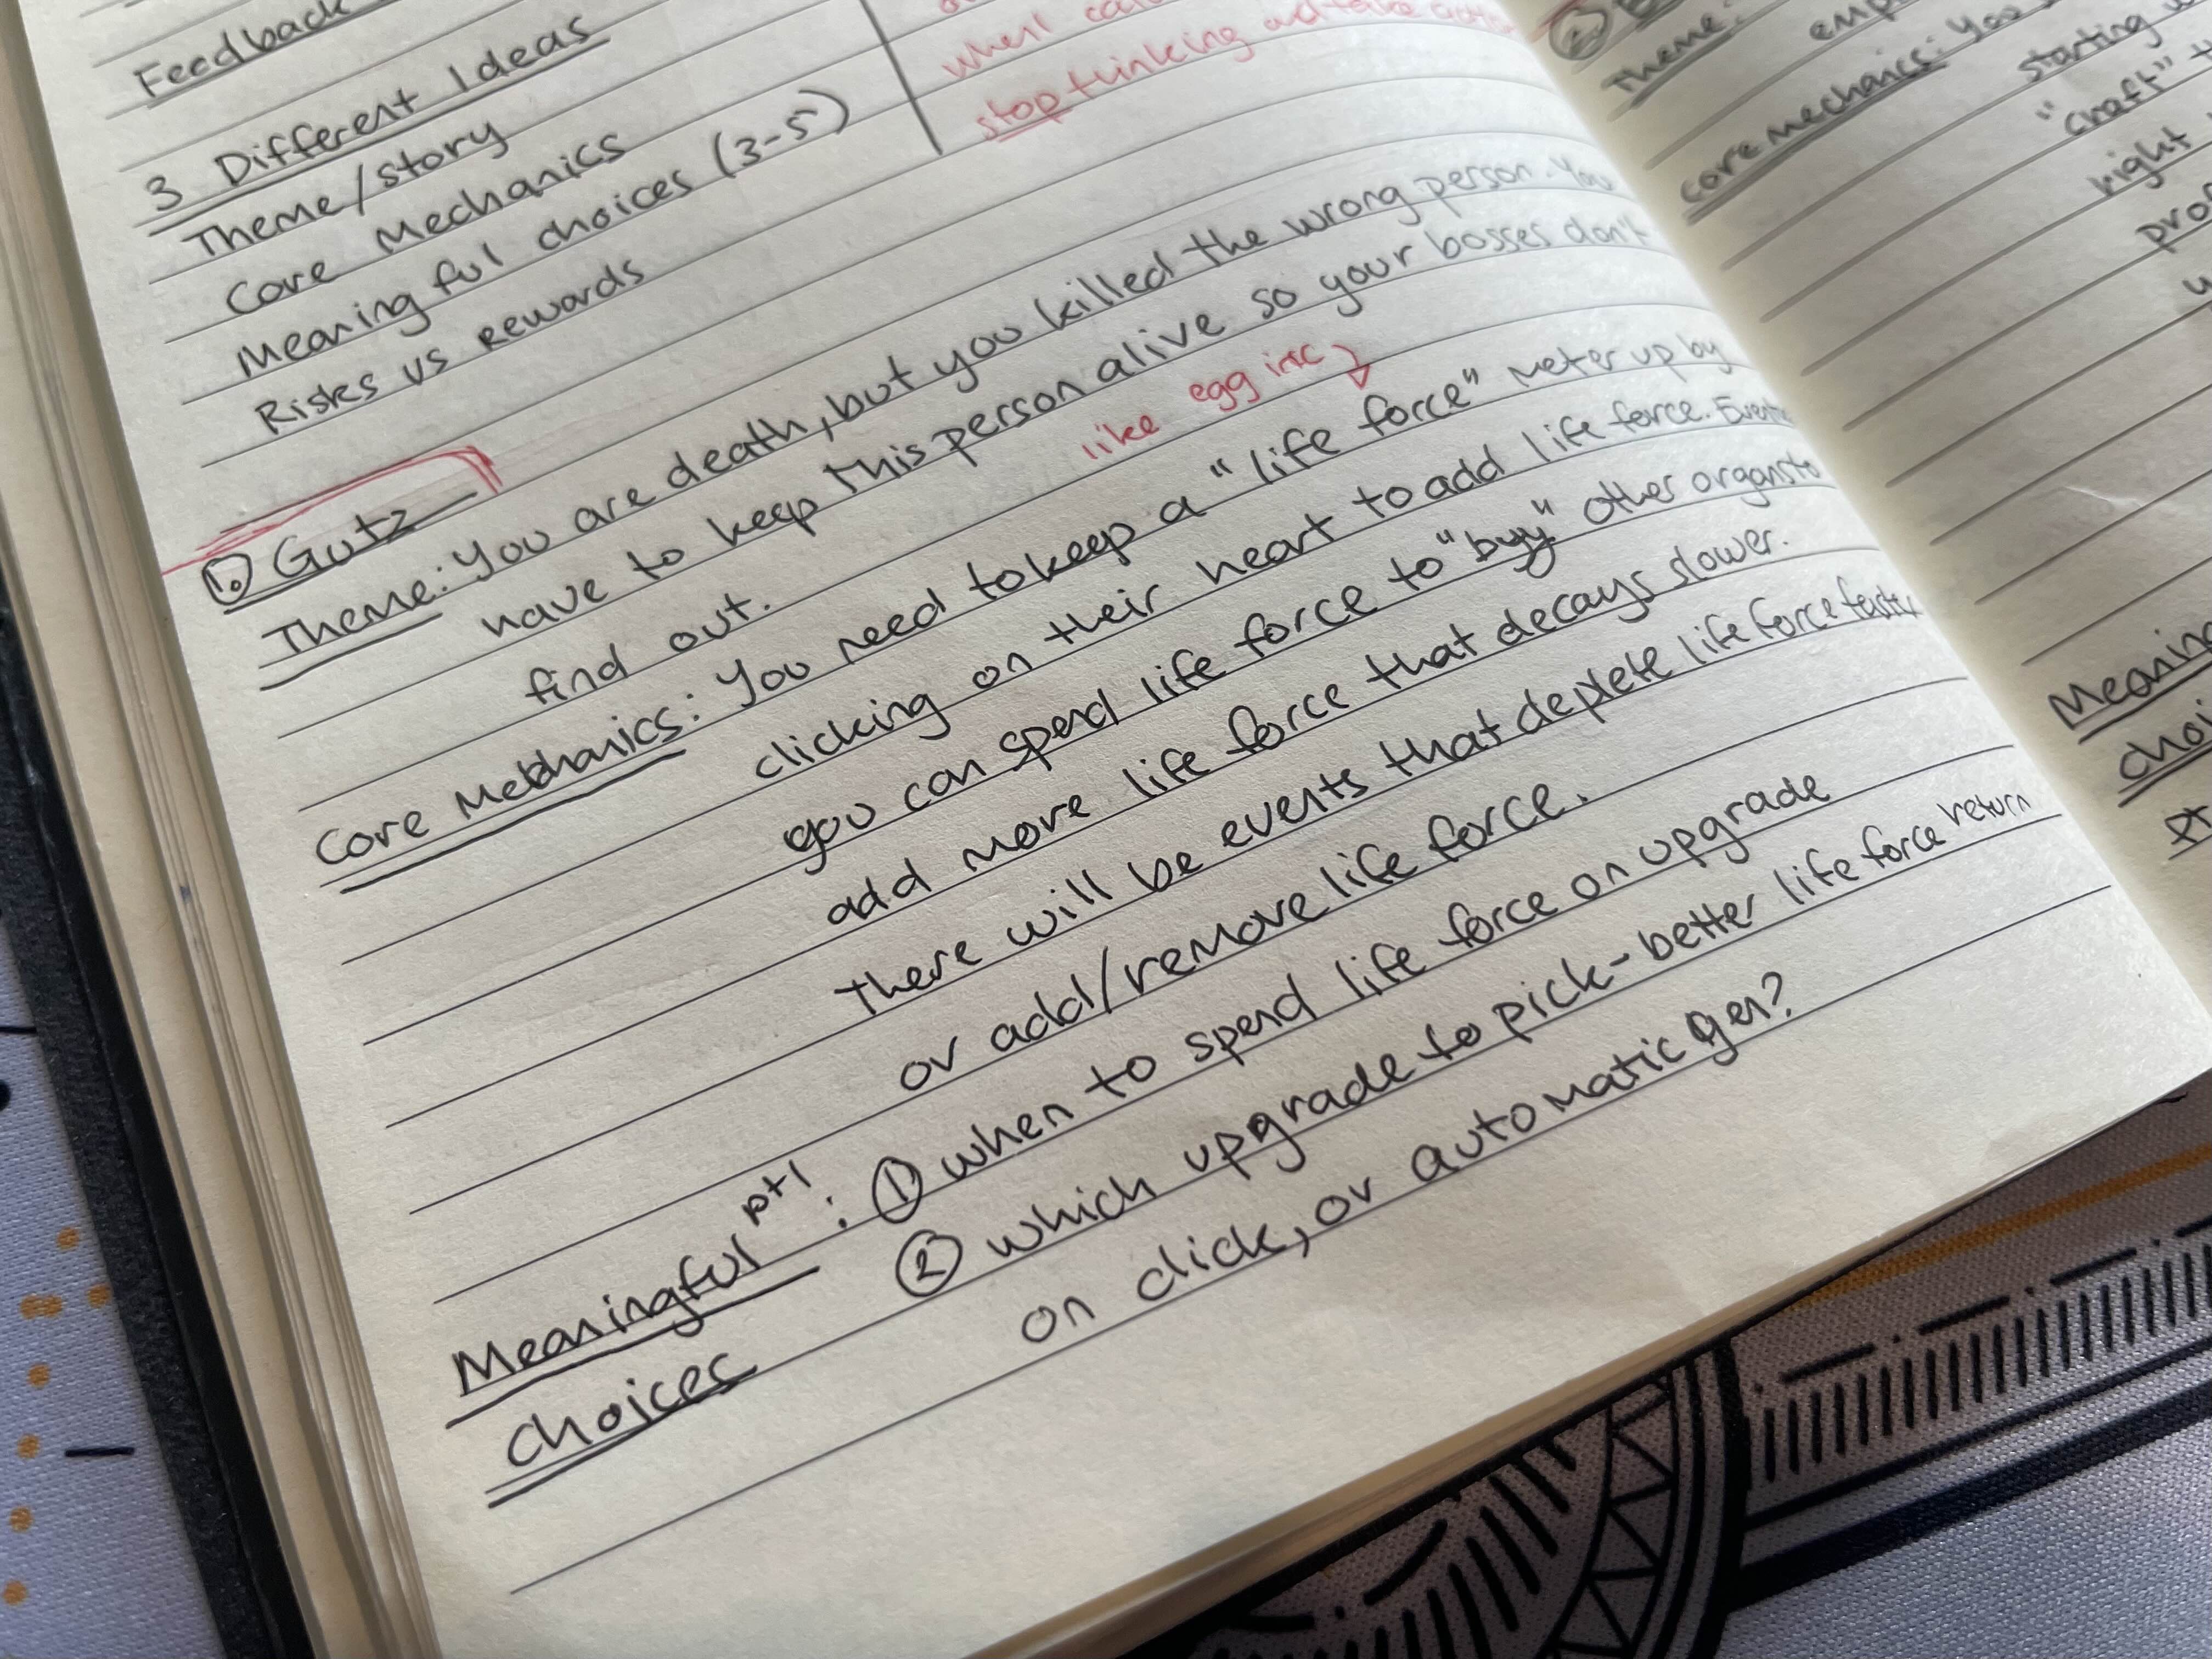 Feedback
3 Different Ideas
Theme/story
Core Mechanics
Meaningful choices (3-5)
Risks vs Rewards
when
stop thinking and take action
1. Gutz
Theme: You are death, but you killed the wrong person. You
have to keep this person alive so your bosses don't
find out.
like egg inc
Core Mechanics: You need to keep a "life force" meter up by
clicking on their heart to add life force.
you can spend life force to "buy" other organs to
add more life force that decays slower.
There will be events that deplete life force faster
or add/remove life force.
Meaningful pt 1 : ① when to spend life force on upgrade
choices ② which upgrade to pick - better life force return
on click, or automatic gen?
② 
Theme:
core mechanics: You
starting
"craft"
right
Meaning
choi